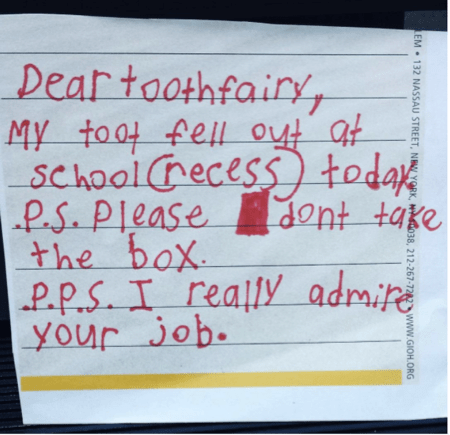 Dear toothfairy,
My toot fell out at
school (recess) today
.P.S. Please dont take
the box.
.P.P.S. I really admire
your job.
EEM • 132 NASSAU STREET, NEW YORK, NY 10038, 212-267-7227 WWW.GIOH.ORG